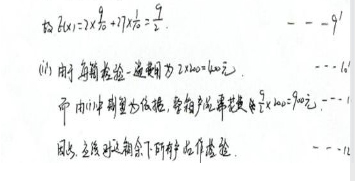 故 E(X)=2×9/10+27×1/10=9/2. ---9'
(ii) 由于每箱检验一遍费用为2×200=400元. ---10'
而由(i)中期望为依据,整箱产品需花费 9/2×200=900元. ---1
因此,应该对这箱余下所有产品作检验. ---12